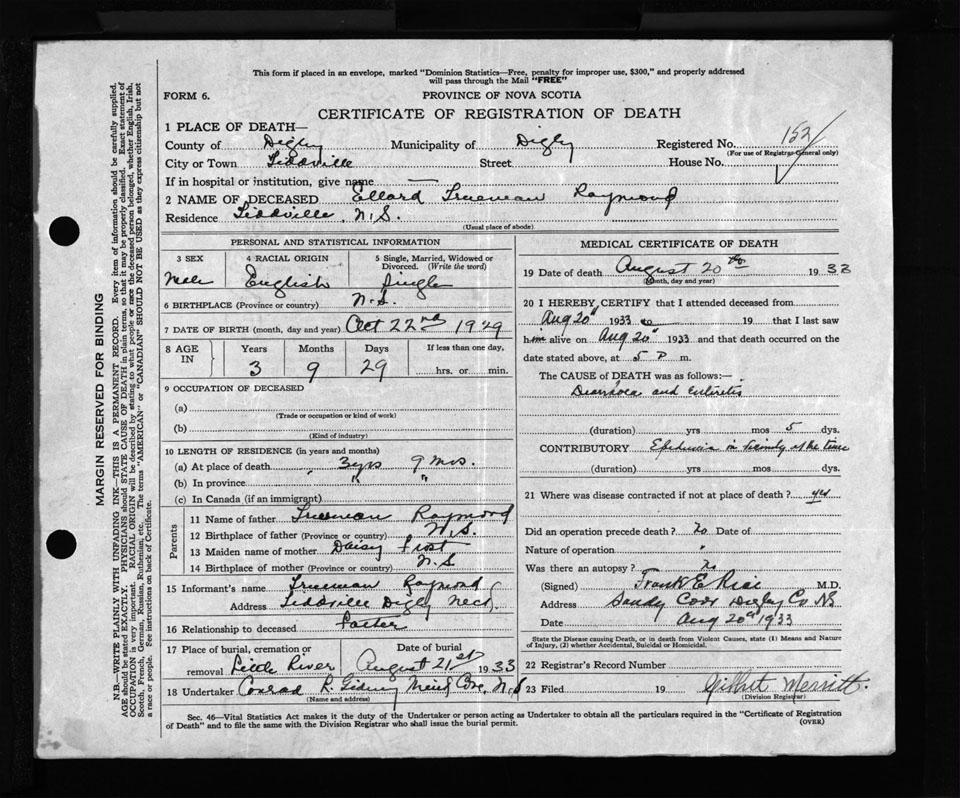 This form if placed in an envelope, marked "Dominion Statistics—Free, penalty for improper use, $300," and properly addressed
will pass through the Mail "FREE"
FORM 6.
PROVINCE OF NOVA SCOTIA
CERTIFICATE OF REGISTRATION OF DEATH
1 PLACE OF DEATH—
County of Digby Municipality of Digby Registered No. 152
(For use of Registrar-General only)
City or Town Tiddville Street House No.
If in hospital or institution, give name —
2 NAME OF DECEASED Ellard Trueman Raymond
Residence Tiddville, N.S.
(Usual place of abode)
PERSONAL AND STATISTICAL INFORMATION
3 SEX Male
4 RACIAL ORIGIN English
5 Single, Married, Widowed or Divorced. (Write the word) Single
6 BIRTHPLACE (Province or country) N.S.
7 DATE OF BIRTH (month, day and year) Oct 22nd 1929
8 AGE IN Years Months Days If less than one day,
3 9 29 hrs. or min.
9 OCCUPATION OF DECEASED
(a)
(Trade or occupation or kind of work)
(b)
(Kind of industry)
10 LENGTH OF RESIDENCE (in years and months)
(a) At place of death 3 yrs 9 mos.
(b) In province " "
(c) In Canada (if an immigrant)
Parents
11 Name of father Trueman Raymond
12 Birthplace of father (Province or country) N.S.
13 Maiden name of mother Daisy Frost
14 Birthplace of mother (Province or country) N.S
15 Informant's name Trueman Raymond
Address Tiddville Digby Neck
16 Relationship to deceased Father
17 Place of burial, cremation or removal Little River
Date of burial August 21st 1933
18 Undertaker Conrad R. Gidney Mink Cove, N.S
(Name and address)
MEDICAL CERTIFICATE OF DEATH
19 Date of death August 20th 1933
(Month, day and year)
20 I HEREBY CERTIFY that I attended deceased from
Aug 20" 1933 to 19 that I last saw
him alive on Aug 20" 1933 and that death occurred on the
date stated above, at 5 P m.
The CAUSE of DEATH was as follows:—
Diarrhoea and Enteritis
(duration) yrs mos 5 dys.
CONTRIBUTORY Epidemic in vicinity at the time
(duration) yrs mos dys.
21 Where was disease contracted if not at place of death?
Did an operation precede death? No Date of
Nature of operation "
Was there an autopsy? No
(Signed) Frank E Rice M.D.
Address Sandy Cove Digby Co NS
Date Aug 20th 1933
State the Disease causing Death, or in death from Violent Causes, state (1) Means and Nature
of Injury, (2) whether Accidental, Suicidal or Homicidal.
22 Registrar's Record Number
23 Filed 19 Gilbert Merritt.
(Division Registrar)
Sec. 46—Vital Statistics Act makes it the duty of the Undertaker or person acting as Undertaker to obtain all the particulars required in the "Certificate of Registration
of Death" and to file the same with the Division Registrar who shall issue the burial permit.
(OVER)
MARGIN RESERVED FOR BINDING
N.B.—WRITE PLAINLY WITH UNFADING INK—THIS IS A PERMANENT RECORD. Every item of information should be carefully supplied.
AGE should be stated EXACTLY. PHYSICIANS should STATE CAUSE OF DEATH in plain terms, so that it may be properly classified. Exact statement of
OCCUPATION is very important. RACIAL ORIGIN will be described by stating to what people or race the deceased person belonged, whether English, Irish,
Scotch, French, German, Russian, Ruthenian, etc. The terms "AMERICAN" or "CANADIAN" SHOULD NOT BE USED as they express citizenship but not
a race or people. See instructions on back of Certificate.